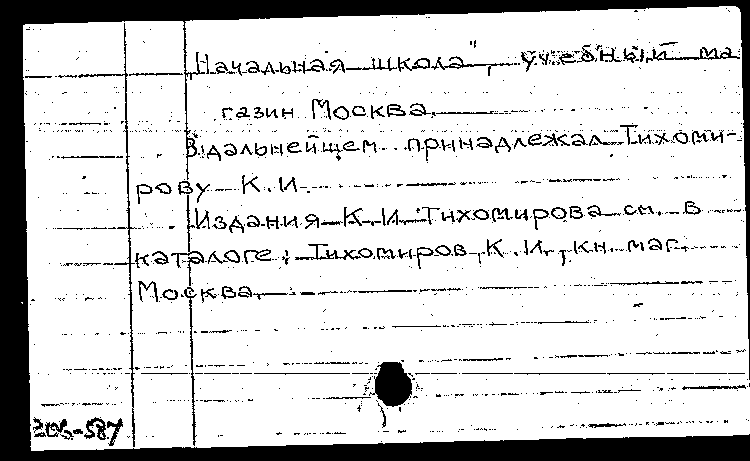 „Начальная школа", учебный ма
газин Москва.
В дальнейщем принадлежал Тихоми-
рову К.И
Издания К.И. Тихомирова см. в
каталоге: Тихомиров, К.И., кн. маг.
Москва.
-587